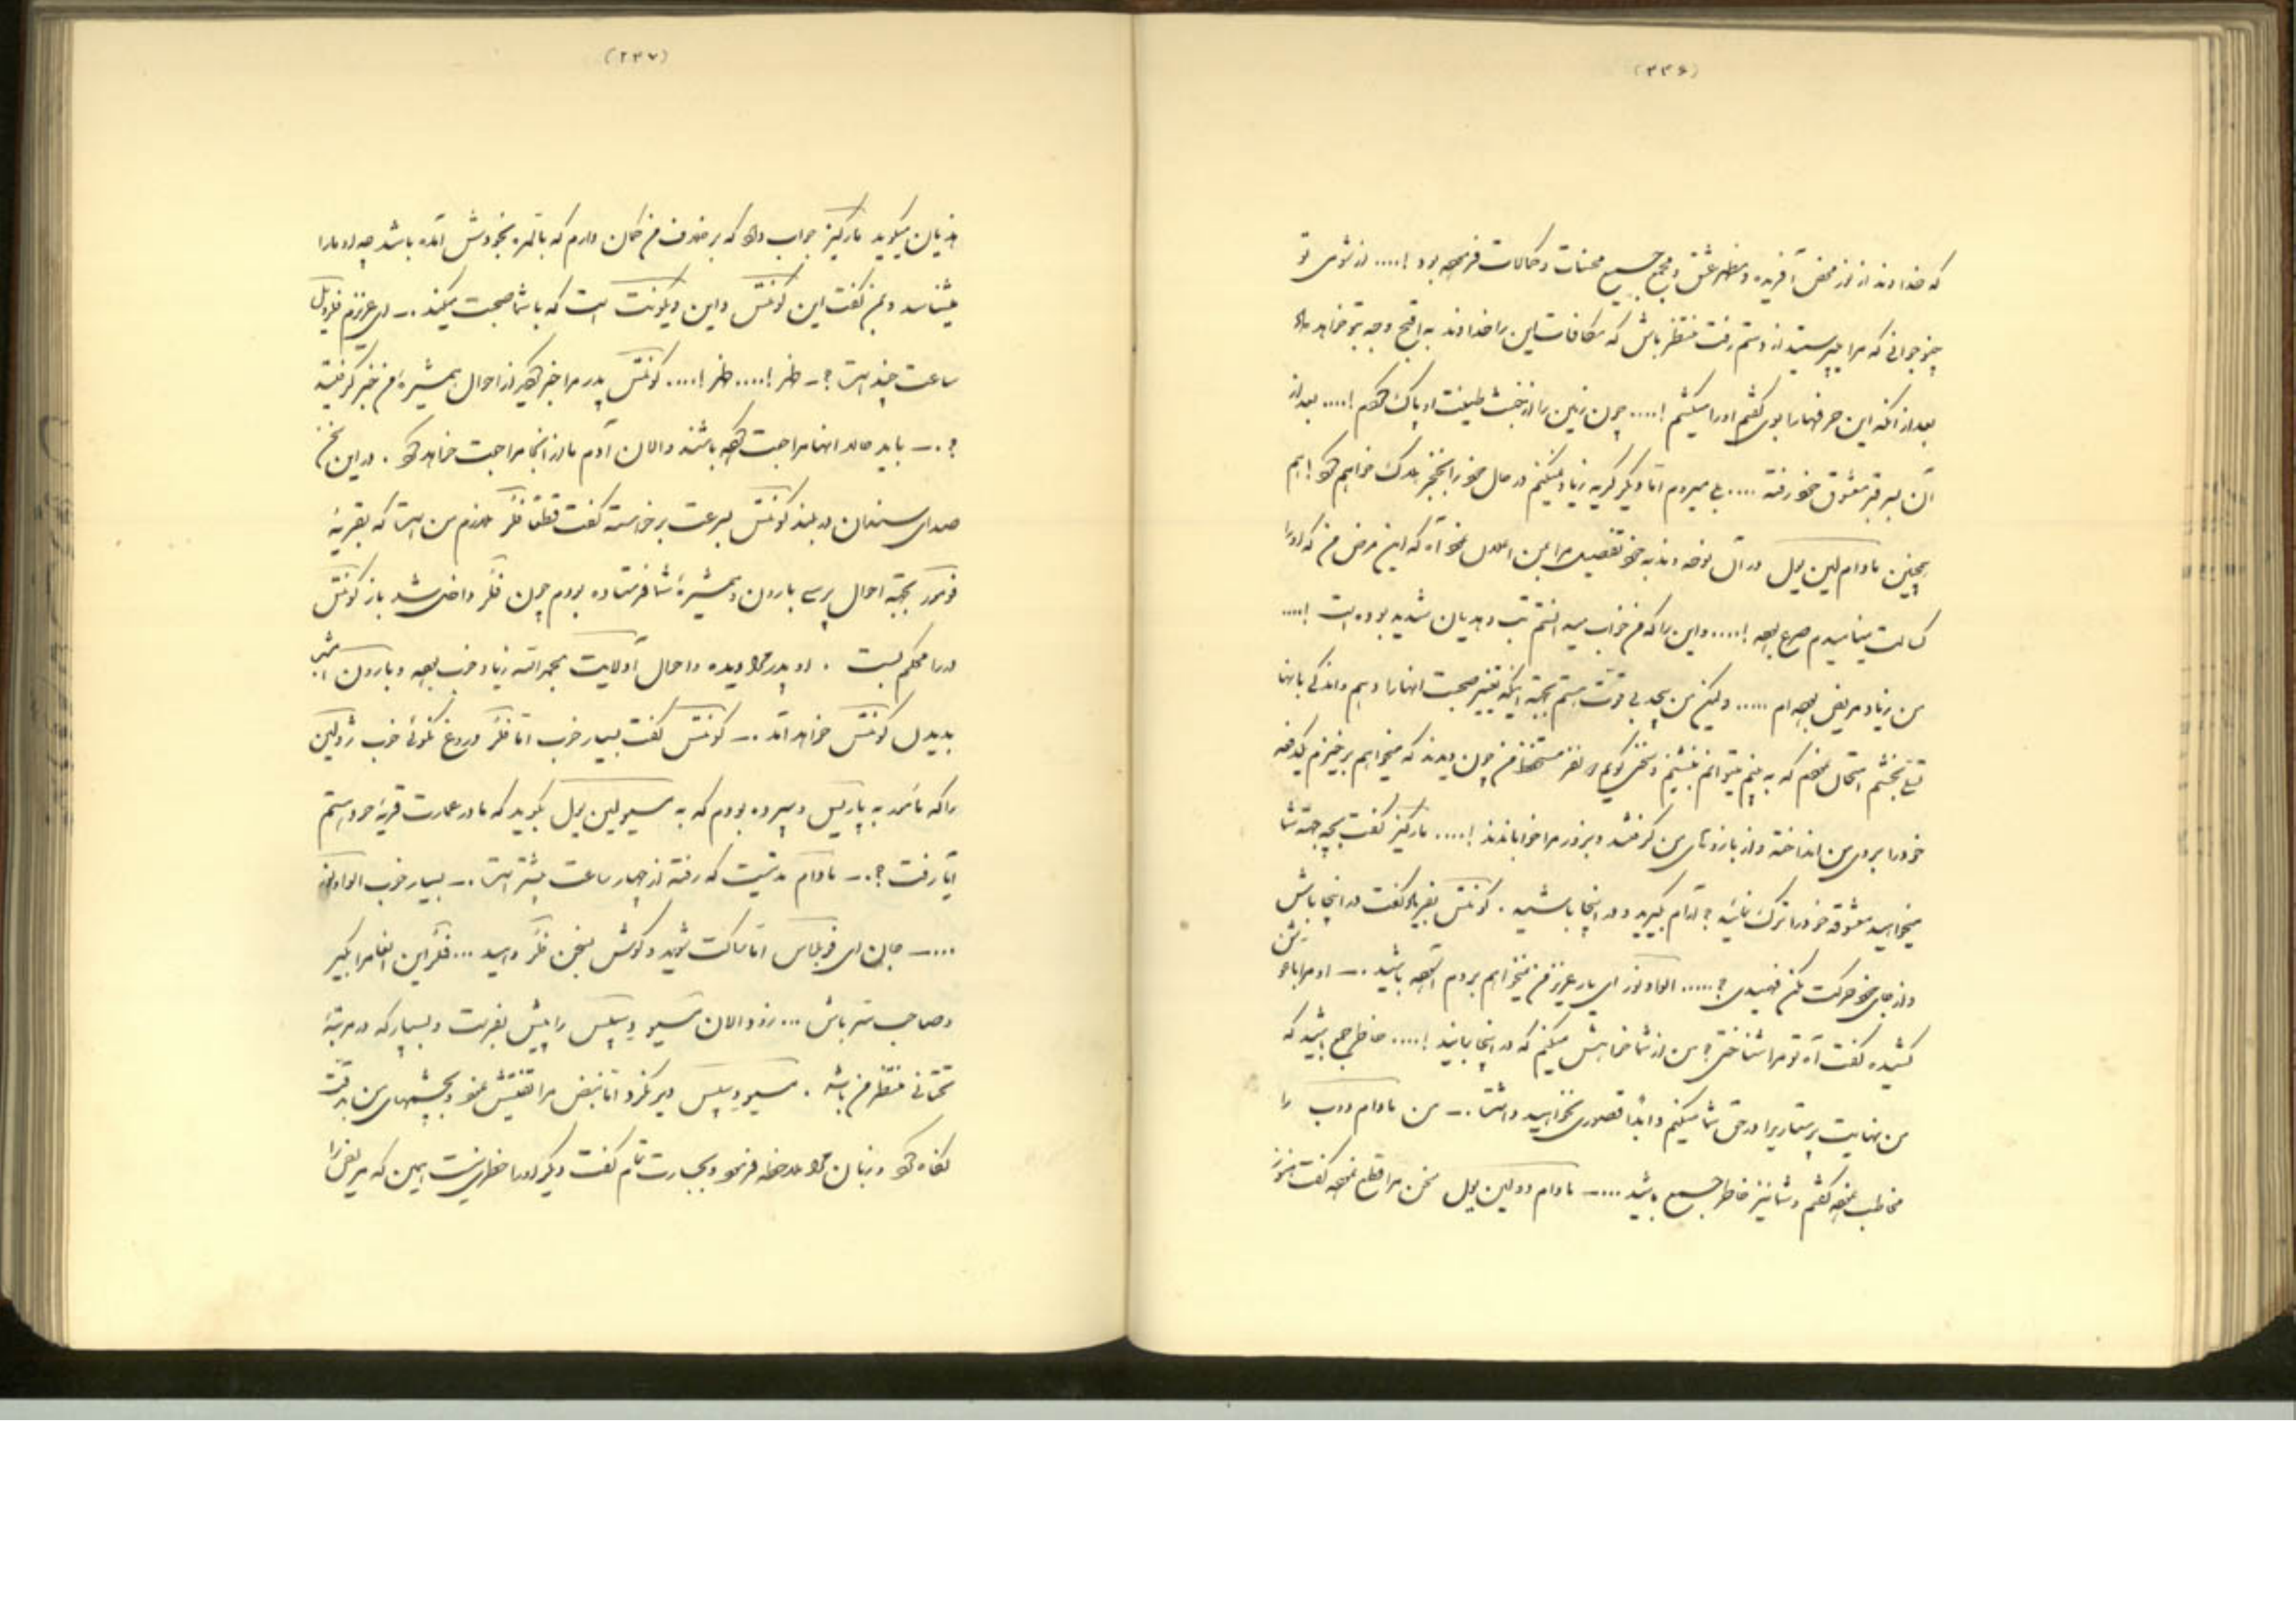 (۲۳۶)
که خداوند از نور محض آفریده و مظهر عشق و مجمع جمیع محسنات و کمالات فرموده بود !.... از شومی تو
چنین جوانی که مرا میپرستید از دستم رفت منتظر باش که مکافات این را خداوند به اقبح وجه بتو خواهد داد
بعد از آنکه این حرفهارا بوی گفتم اورا میکشم !.... چون زمین را از خبث طینت او پاک کردم !.... بعد از
آن بسر قبر معشوق خود رفته .... بلی میروم اما دیگر گریه زیاد نمیکنم در حال خود را بخنجر هلاک خواهم کرد !
همچنین مادام لین یول در آن
کسالت مینامیدم صرع بوده !.... و این را که من خواب میدانستم تب و هذیان شدید بوده است !....
من زیاد مریض بوده ام ..... ولیکن من بیحد بی قوت هستم بجهة اینکه تغییر صحبت آنهارا دهم و اندکی بآنها
تسلی بخشم امتحان نمودم که به بینم میتوانم بنشینم و سخن گویم نفر مستحفظ من چون دیدند که میخواهم برخیزم یکدفعه
خود را بروی من انداخته و از بازوهای من گرفتند و بزور مرا خوابانیدند !.... مارکیز گفت بچه جهة شما
میخواهید معشوقه خود را ترک نمائید ؟ آرام بگیرید و در اینجا باشید . کونتس بفریاد گفت در اینجا باش
و از جای خود حرکت مکن فهمیدی ؟..... ای یار عزیز من میخواهم بروم آسوده باشید .ـ او مرا باغوش
کشیده گفت آه تو مرا شناختی ؟ من از شما خواهش میکنم که در اینجا بمانید !.... خاطر جمع باشید که
من نهایت پرستاریرا در حق شما میکنم و ابداً قصوری نخواهید داشت .ـ من مادام را
مخاطب نموده گفتم و شما نیز خاطر جمیع باشید ....ـ مادام دولین یول سخن مرا قطع نموده گفت هنوز
(۲۳۷)
هذیان میگوید مارکیز جواب داد که بر خلاف من گمان دارم که بالمره بخودش آمده باشد چه او مارا
میشناسد و بمن گفت این کونتس و این ویکونت است که با شما صحبت میکند .ـ ای عزیزم
ساعت چند است ؟ـ ظهر !.... ظهر !.... کونتس پدر مرا خبر کنید از احوال همشیرهٔ من خبر گرفتید
؟ .ـ باید حالا آنها مراجعت کرده باشند و الان آدم ما از آنجا مراجعت خواهد کرد . در این سخن
صدای سندان در بلند کونتس بسرعت برخواسته گفت قطعاً فلکر ملازم من است که بقریهٔ
بجهة احوال پرسی بارون و همشیرهٔ شما فرستاده بودم چون فلکر داخل شد باز کونتس
در را محکم بست . او پدر مرا دیده و احوال آدلایت بحمدالله زیاد خوب بوده و بارون امشب
بدیدن کونتس خواهد آمد .ـ کونتس گفت بسیار خوب اما فلکر دروغ نگوئی خوب ژولین
را که مأمور به پاریس و سپرده بودم که به مسیو لین یول بگوید که ما در عمارت قریهٔ خود هستم
آیا رفت ؟ .ـ مادام مدتیست که رفته از چهار ساعت بیشتر است .ـ بسیار خوب
....ـ جان ای اما ساکت شوید و گوش بسخن فلکر دهید ... فلکر این انعام را بگیر
و صاحب سر باش ... زود الان مسیو دپیس را پیش بفرست و بسپار که در مرتبهٔ
تحتانی منتظر من باشد . مسیو دپیس دیر نکرد اما نبض مرا تفتیش نمود و بچشمهای من بدقت
نگاه کرد و زبان مرا ملاحظه فرمود و بجسارت تمام گفت دیگر اورا خطری نیست همین که مریض را